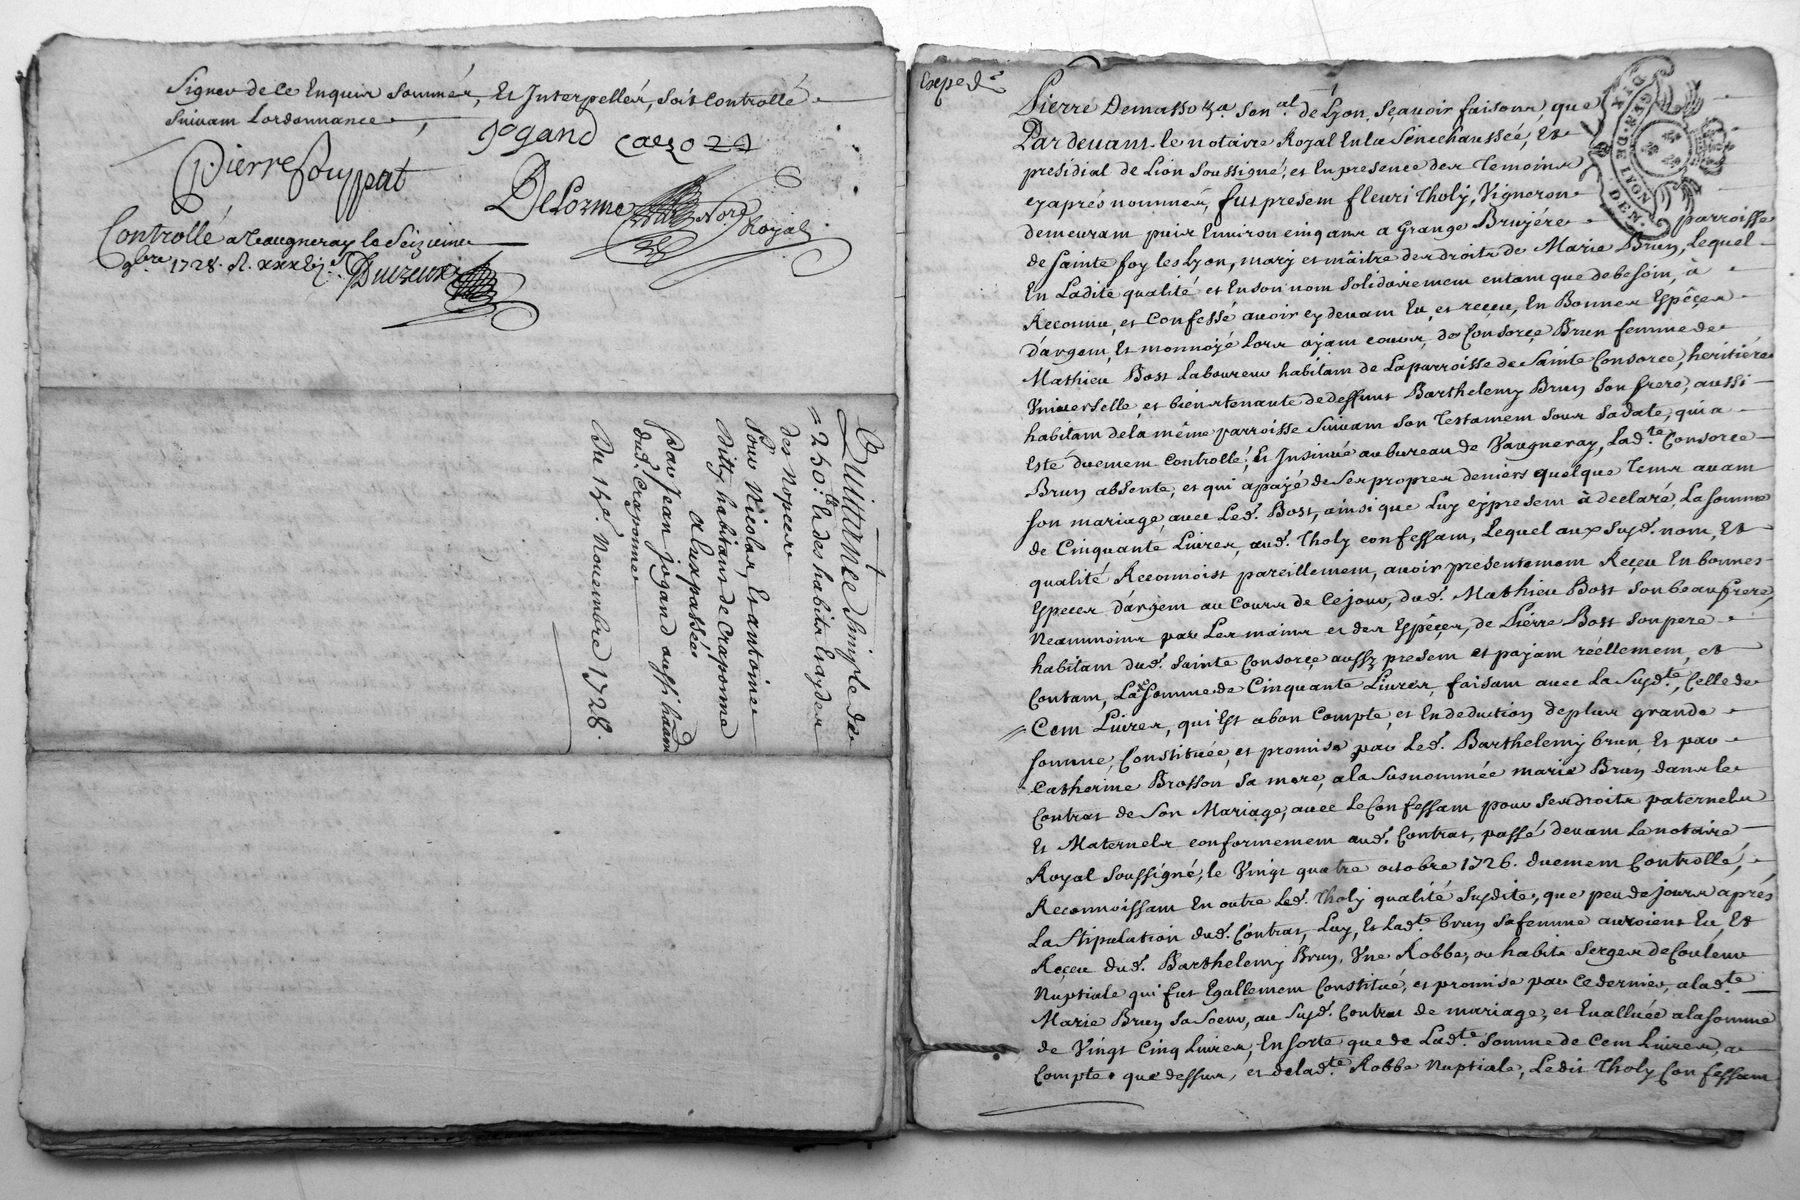 Signer de ce Enquis sommés, Et Interpellés, soit controllé
suivant Lordonnance
Jogand
Pierre Fouppat
DeLorme
Nore Royal
Controllé a Vaugneray le Seizieme
9bre 1728. R.
Quittance simple de
= 250 lt. des habits Et aydes
des Nopces
Pour Nicolas, Et antoine
habitans de Craponne
a Eux passée
par Jean jogand aussi habitt
dud. Craponne
Du 15e. Novembre 1728.
Exped.e
Pierre Demasso sen.al de Lyon, Sçavoir faisons, que
Pardevant le notaire Royal En la Sénéchaussée, Et
présidial de Lion soussigné, et En presence des Temoins
cy aprés nommés, fut present fleuri Tholy, Vigneron
demeurant puis Environ cinq ans a Grange Bruyére parroisse
de Sainte foy les Lyon, mary et mâitre des droits de Marie Brun, Lequel
En Ladite qualité et En son nom solidairement entant que de besoin, à
Reconnu, et Confessé avoir cy devant Eu, et receu, En Bonnes Espêçes
d'argent, Et monnoyé Lors ayant cours, de Consorçe Brun femme de
Mathieu Bost Laboureur habitant de Laparroisse de Sainte Consorce, heritiére
Vniverselle, et bien tenante de deffunt Barthelemy Brun son frere, aussi
habitant dela même parroisse suivant son Testament sous sa date, qui a
Esté duement Controllé, Et Insinué au bureau de Vaugneray, Lad.te Consorce
Brun absente, et qui a payé de ses propres deniers quelque Tems avant
son mariage avec Led. Bost, ainsi que Luy cy present à declaré, La somme
de Cinquante Livres, aud. Tholy confessant, Lequel aux Susd. nom, Et
qualité Reconnoist pareillement, avoir presentement Reçeu En bonnes
Especes d'argent au Cours de Cejour, dud. Mathieu Bost Son beaufrere,
Neanmoins par Les mains et des Espêçes, de Pierre Bost son pere
habitant dud. Sainte Consorçe aussy present et payant réellement, et
Contant, La Somme de Cinquante Livres, faisant avec La Susd.te, Celle de
Cent Livres, qui Est a bon Compte, et En deduction de plus grande
somme, Constituée, et promise par Led. Barthelemy brun, Et par
Catherine Brosson sa mere, a la susnommée marie Brun dans le
Contrat de Son Mariage, avec Le Confessant pour ses droits paternels
Et Maternels conformement aud. Contrat, passé devant Le notaire
Royal Soussigné, le Vingt quatre octobre 1726. duement Controllé,
Reconnoissant En outre Led. Tholy qualité Susdite, que peu de jours aprés
La Stipulation dud. Contrat, Luy, Et Lad.te brun sa femme auroient Eu, Et
Reçeu dud. Barthelemy Brun, Vne Robbe, ou habit Serges de Couleur
Nuptiale qui fut Egallement Constitué, et promise par Ce dernier, a lad.te
Marie Brun sa Soeur, au Susd. Contrat de mariage, et Evalluée a la somme
de Vingt Cinq Livres, En sorte que de Lad.te Somme de Cent Livres, a
Compte que dessus, et de lad.te Robbe Nuptiale, Ledit Tholy Confessant
GEN.DE.LYON
DEN.